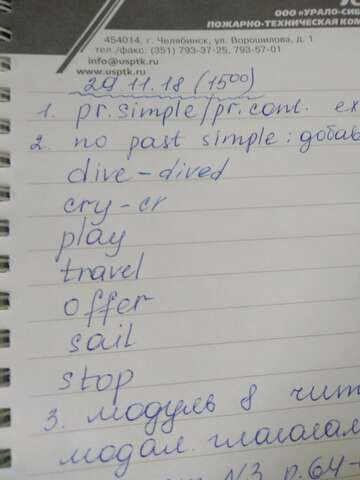 ООО «УРАЛО-СИБ
ПОЖАРНО-ТЕХНИЧЕСКАЯ КОМ
454014, г. Челябинск, ул. Ворошилова, д. 1
тел./факс: (351) 793-37-25, 793-57-01
info@usptk.ru
www.usptk.ru
29.11.18 (15⁰⁰)
1. pr.simple/pr.cont. ex
2. по past simple: добав
dive - dived
cry - cr
play
travel
offer
sail
stop
3. модуль 8 чит
модал. глаголам
N3 p.64-